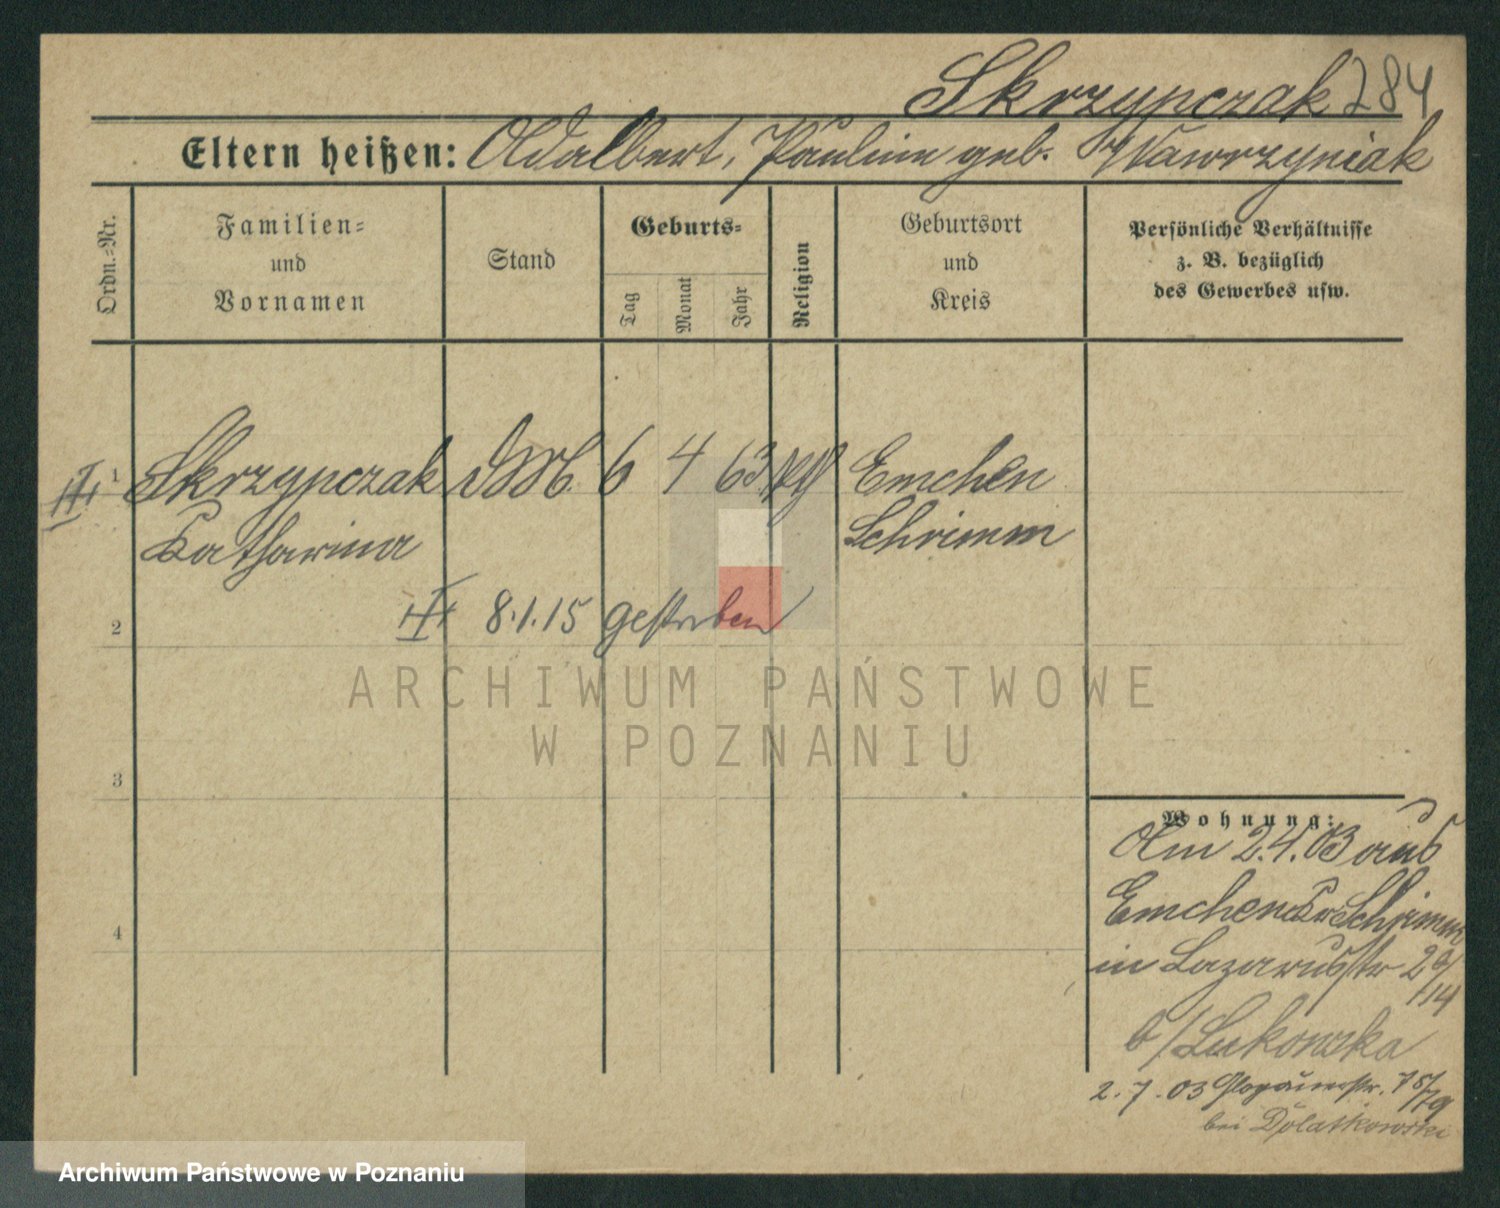 Skrzypczak 284
Eltern heißen: Adalbert, Pauline geb. Wawrzyniak
Ordn.-Nr.
Familien-
und
Vornamen
Stand
Geburts-
Tag
Monat
Jahr
Religion
Geburtsort
und
Kreis
Persönliche Verhältnisse
z. B. bezüglich
des Gewerbes usw.
1 Skrzypczak DM. 6 4 63 Emchen
Katharina Schrimm
2 8.1.15 gestorben
3
4
ARCHIWUM PAŃSTWOWE
W POZNANIU
Wohnung:
Am 2.4.03 aus
Emchen Kr Schrimm
in Lazarusstr
b/Lukowska
2.7.03 Glogauerstr.
bei Dolatkowski
Archiwum Państwowe w Poznaniu